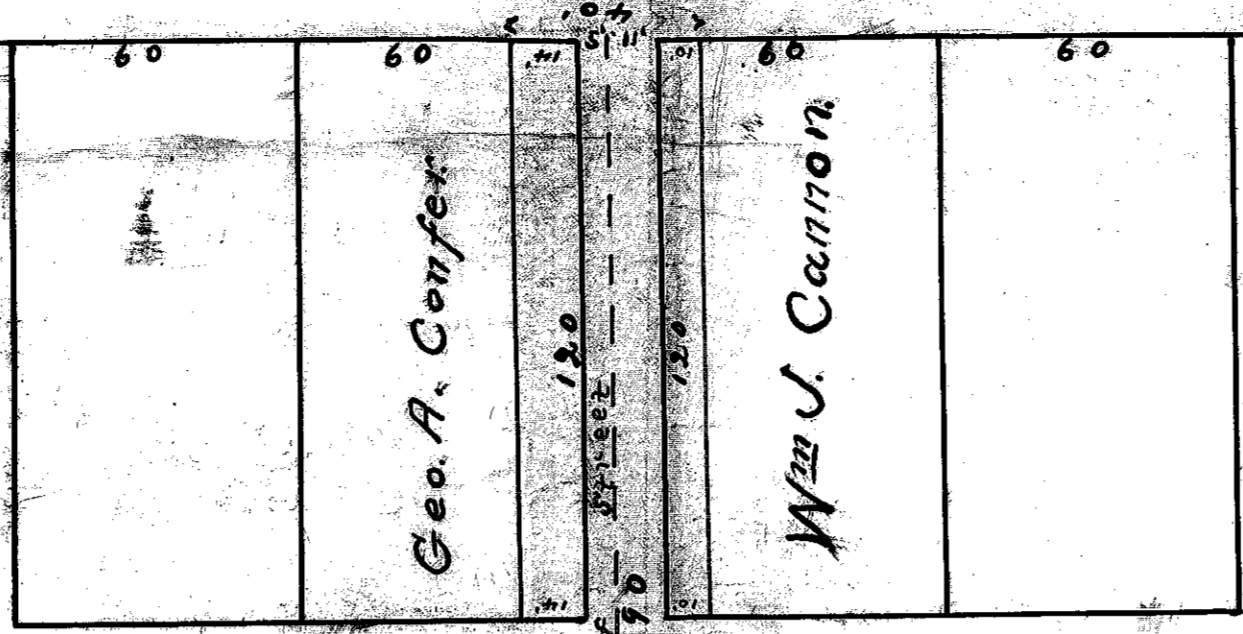 40'
11.5
60
60
14'
10'
60
60
Geo. A. Confer
120
Street
120
Wm J. Cannon.
14'
10'
60